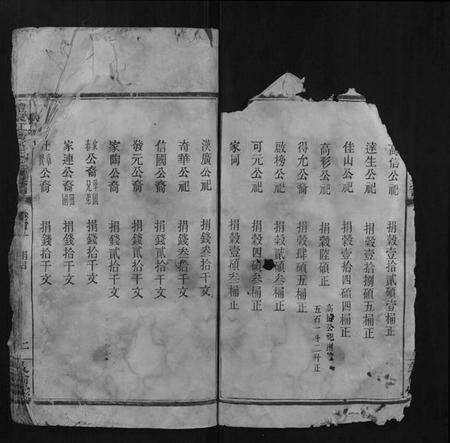 高信公祀 捐穀壹拾貳碩壹桶正
達生公祀 捐穀壹拾捌碩五桶正
佳山公祀 捐穀壹拾四碩四桶正
高彩公祀 捐穀陸碩正
五石一斗二升正
得尤公裔 捐穀肆碩五桶正
啟榜公祀 捐穀貳碩叁桶正
可元公祀 捐穀四碩叁桶正
家同 捐穀壹碩叁桶正
漢廣公祀 捐錢叁拾千文
奇華公祀 捐錢叁拾千文
信國公裔 捐錢貳拾千文
發元公裔 捐錢貳拾千文
家陶公裔 捐錢貳拾千文
公裔 捐錢拾千文
家連公裔 捐錢拾千文
公裔 捐錢拾千文